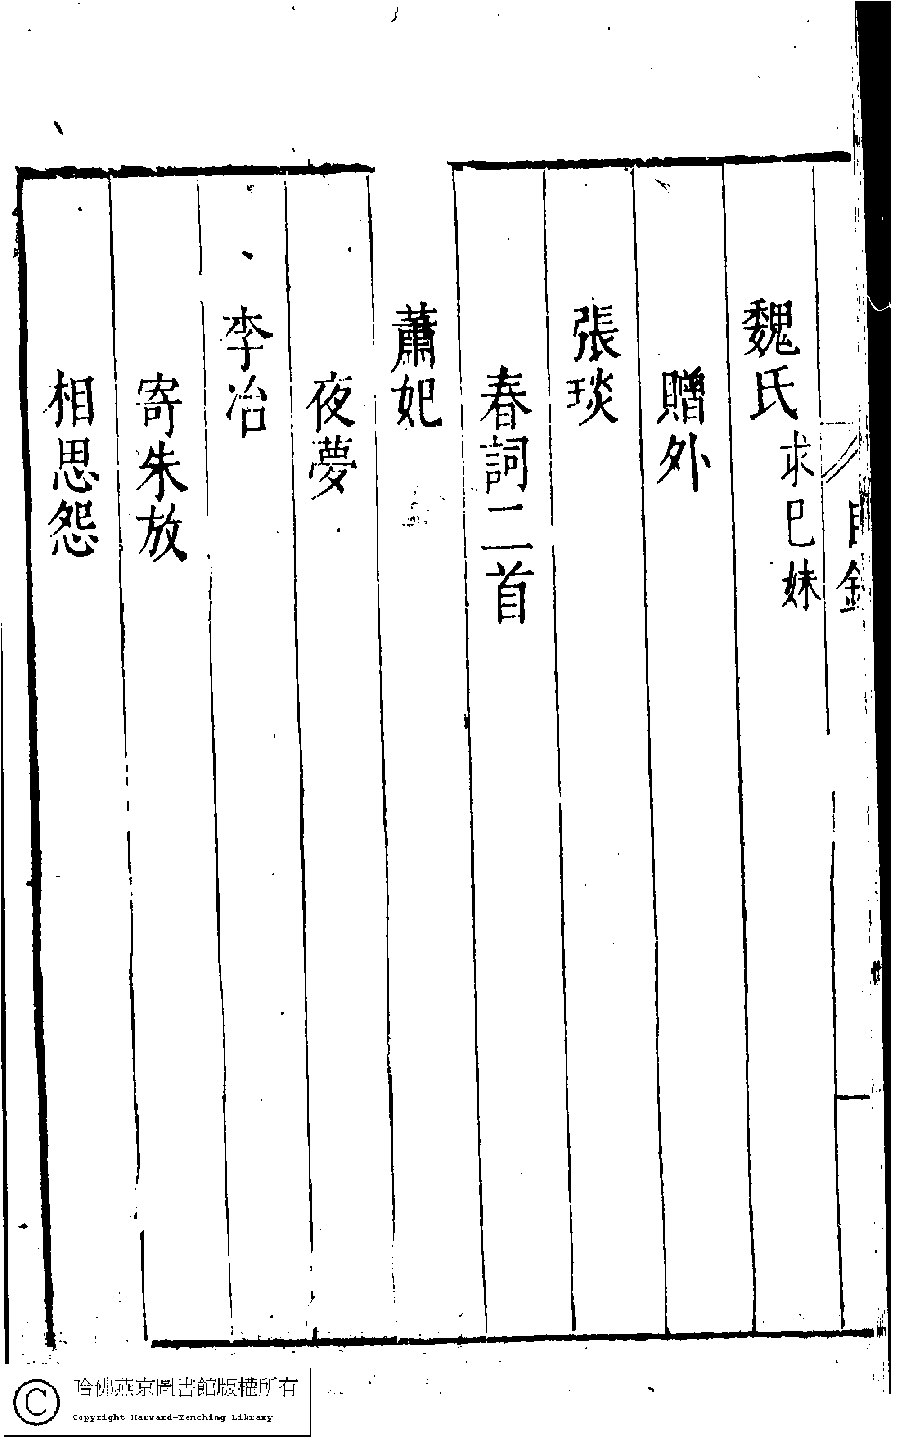 目錄
魏氏 求巳妹
贈外
張琰
春詞二首
蕭妃
夜夢
李冶
寄朱放
相思怨
哈佛燕京圖書館版權所有
Copyright Harvard-Yenching Library